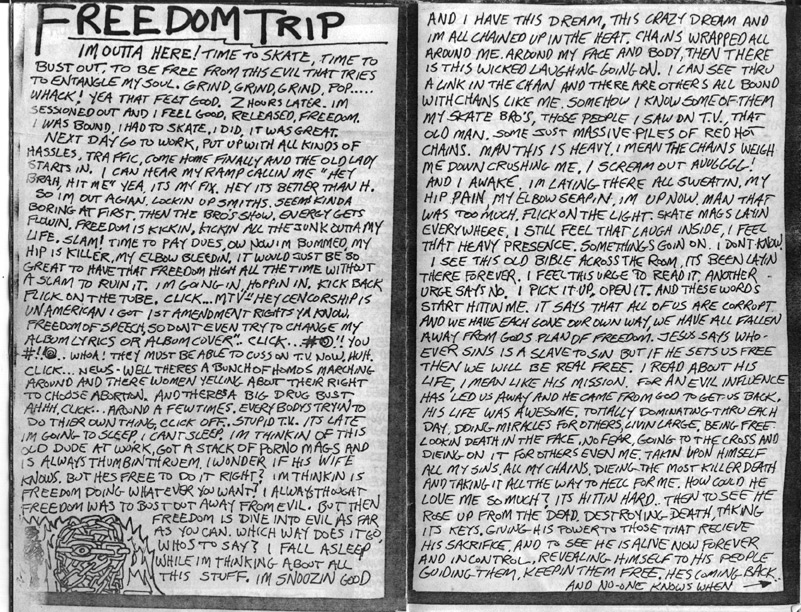 FREEDOM TRIP
IM OUTTA HERE! TIME TO SKATE, TIME TO
BUST OUT, TO BE FREE FROM THIS EVIL THAT TRIES
TO ENTANGLE MY SOUL. GRIND, GRIND, GRIND, POP.....
WHACK! YEA THAT FELT GOOD. 2 HOURS LATER. IM
SESSIONED OUT AND I FEEL GOOD, RELEASED, FREEDOM.
I WAS BOUND, I HAD TO SKATE, I DID, IT WAS GREAT.
NEXT DAY GO TO WORK, PUT UP WITH ALL KINDS OF
HASSLES, TRAFFIC, COME HOME FINALLY AND THE OLD LADY
STARTS IN. I CAN HEAR MY RAMP CALLIN ME "HEY
BRAH, HIT ME" YEA, ITS MY FIX. HEY ITS BETTER THAN H.
SO IM OUT AGIAN. LOCKIN UP SMITHS. SEEMS KINDA
BORING AT FIRST. THEN THE BRO'S SHOW. ENERGY GETS
FLOWIN. FREEDOM IS KICKIN, KICKIN ALL THE JUNK OUTTA MY
LIFE. SLAM! TIME TO PAY DUES, OW NOW IM BUMMED, MY
HIP IS KILLER, MY ELBOW BLEEDIN. IT WOULD JUST BE SO
GREAT TO HAVE THAT FREEDOM HIGH ALL THE TIME WITHOUT
A SLAM TO RUIN IT. IM GOING IN, HOPPIN IN. KICK BACK
FLICK ON THE TUBE. CLICK... MTV "HEY CENCORSHIP IS
UNAMERICAN I GOT 1ST AMENDMENT RIGHTS YA KNOW.
FREEDOM OF SPEECH, SO DONT EVEN TRY TO CHANGE MY
ALBUM LYRICS OR ALBUM COVER".. CLICK... #@!! YOU
#!@.. WHOA! THEY MUST BE ABLE TO CUSS ON T.V. NOW, HUH.
CLICK... NEWS- WELL THERES A BUNCH OF HOMOS MARCHING
AROUND AND THERE WOMEN YELLING ABOUT THEIR RIGHT
TO CHOOSE ABORTION. AND THERES A BIG DRUG BUST,
AHHH, CLICK... AROUND A FEW TIMES. EVERYBODYS TRYIN TO
DO THIER OWN THING, CLICK OFF. STUPID T.V. ITS LATE
IM GOING TO SLEEP, I CANT SLEEP. IM THINKIN OF THIS
OLD DUDE AT WORK, GOT A STACK OF PORNO MAGS AND
IS ALWAYS THUMBIN THRU EM. I WONDER IF HIS WIFE
KNOWS. BUT HES FREE TO DO IT RIGHT? IM THINKIN IS
FREEDOM DOING WHATEVER YOU WANT! I ALWAYS THOUGHT
FREEDOM WAS TO BUST OUT AWAY FROM EVIL. BUT THEN
FREEDOM IS DIVE INTO EVIL AS FAR
AS YOU CAN. WHICH WAY DOES IT GO,
WHOS TO SAY? I FALL ASLEEP
WHILE IM THINKING ABOUT ALL
THIS STUFF. IM SNOOZIN GOOD
AND I HAVE THIS DREAM, THIS CRAZY DREAM AND
IM ALL CHAINED UP IN THE HEAT. CHAINS WRAPPED ALL
AROUND ME. AROUND MY FACE AND BODY, THEN THERE
IS THIS WICKED LAUGHING GOING ON. I CAN SEE THRU
A LINK IN THE CHAIN AND THERE ARE OTHERS ALL BOUND
WITH CHAINS LIKE ME. SOMEHOW I KNOW SOME OF THEM
MY SKATE BRO'S, THOSE PEOPLE I SAW ON T.V., THAT
OLD MAN. SOME JUST MASSIVE PILES OF RED HOT
CHAINS. MAN THIS IS HEAVY. I MEAN THE CHAINS WEIGH
ME DOWN CRUSHING ME. I SCREAM OUT AUUGGGL!
AND I AWAKE. IM LAYING THERE ALL SWEATIN. MY
HIP PAIN, MY ELBOW SEAPIN, IM UP NOW. MAN THAT
WAS TOO MUCH. FLICK ON THE LIGHT. SKATE MAGS LAYIN
EVERYWHERE, I STILL FEEL THAT LAUGH INSIDE, I FEEL
THAT HEAVY PRESENCE. SOMETHINGS GOIN ON. I DONT KNOW!
I SEE THIS OLD BIBLE ACROSS THE ROOM, ITS BEEN LAYIN
THERE FOREVER. I FEEL THIS URGE TO READ IT, ANOTHER
URGE SAYS NO. I PICK IT UP, OPEN IT. AND THESE WORDS
START HITTIN ME. IT SAYS THAT ALL OF US ARE CORRUPT.
AND WE HAVE EACH GONE OUR OWN WAY, WE HAVE ALL FALLEN
AWAY FROM GODS PLAN OF FREEDOM. JESUS SAYS WHO-
EVER SINS IS A SLAVE TO SIN BUT IF HE SETS US FREE
THEN WE WILL BE REAL FREE. I READ ABOUT HIS
LIFE, I MEAN LIKE HIS MISSION. FOR AN EVIL INFLUENCE
HAS LED US AWAY AND HE CAME FROM GOD TO GET US BACK.
HIS LIFE WAS AWESOME, TOTALLY DOMINATING THRU EACH
DAY. DOING MIRACLES FOR OTHERS, LIVIN LARGE, BEING FREE.
LOOKIN DEATH IN THE FACE, NO FEAR, GOING TO THE CROSS AND
DIEING ON IT FOR OTHERS EVEN ME. TAKIN UPON HIMSELF
ALL MY SINS, ALL MY CHAINS, DIEING THE MOST KILLER DEATH
AND TAKING IT ALL THE WAY TO HELL FOR ME. HOW COULD HE
LOVE ME SO MUCH? ITS HITTIN HARD. THEN TO SEE HE
ROSE UP FROM THE DEAD, DESTROYING DEATH, TAKING
ITS KEYS. GIVING HIS POWER TO THOSE THAT RECIEVE
HIS SACRIFICE, AND TO SEE HE IS ALIVE NOW FOREVER
AND IN CONTROL, REVEALING HIMSELF TO HIS PEOPLE
GUIDING THEM, KEEPIN THEM FREE. HES COMING BACK
AND NO-ONE KNOWS WHEN →